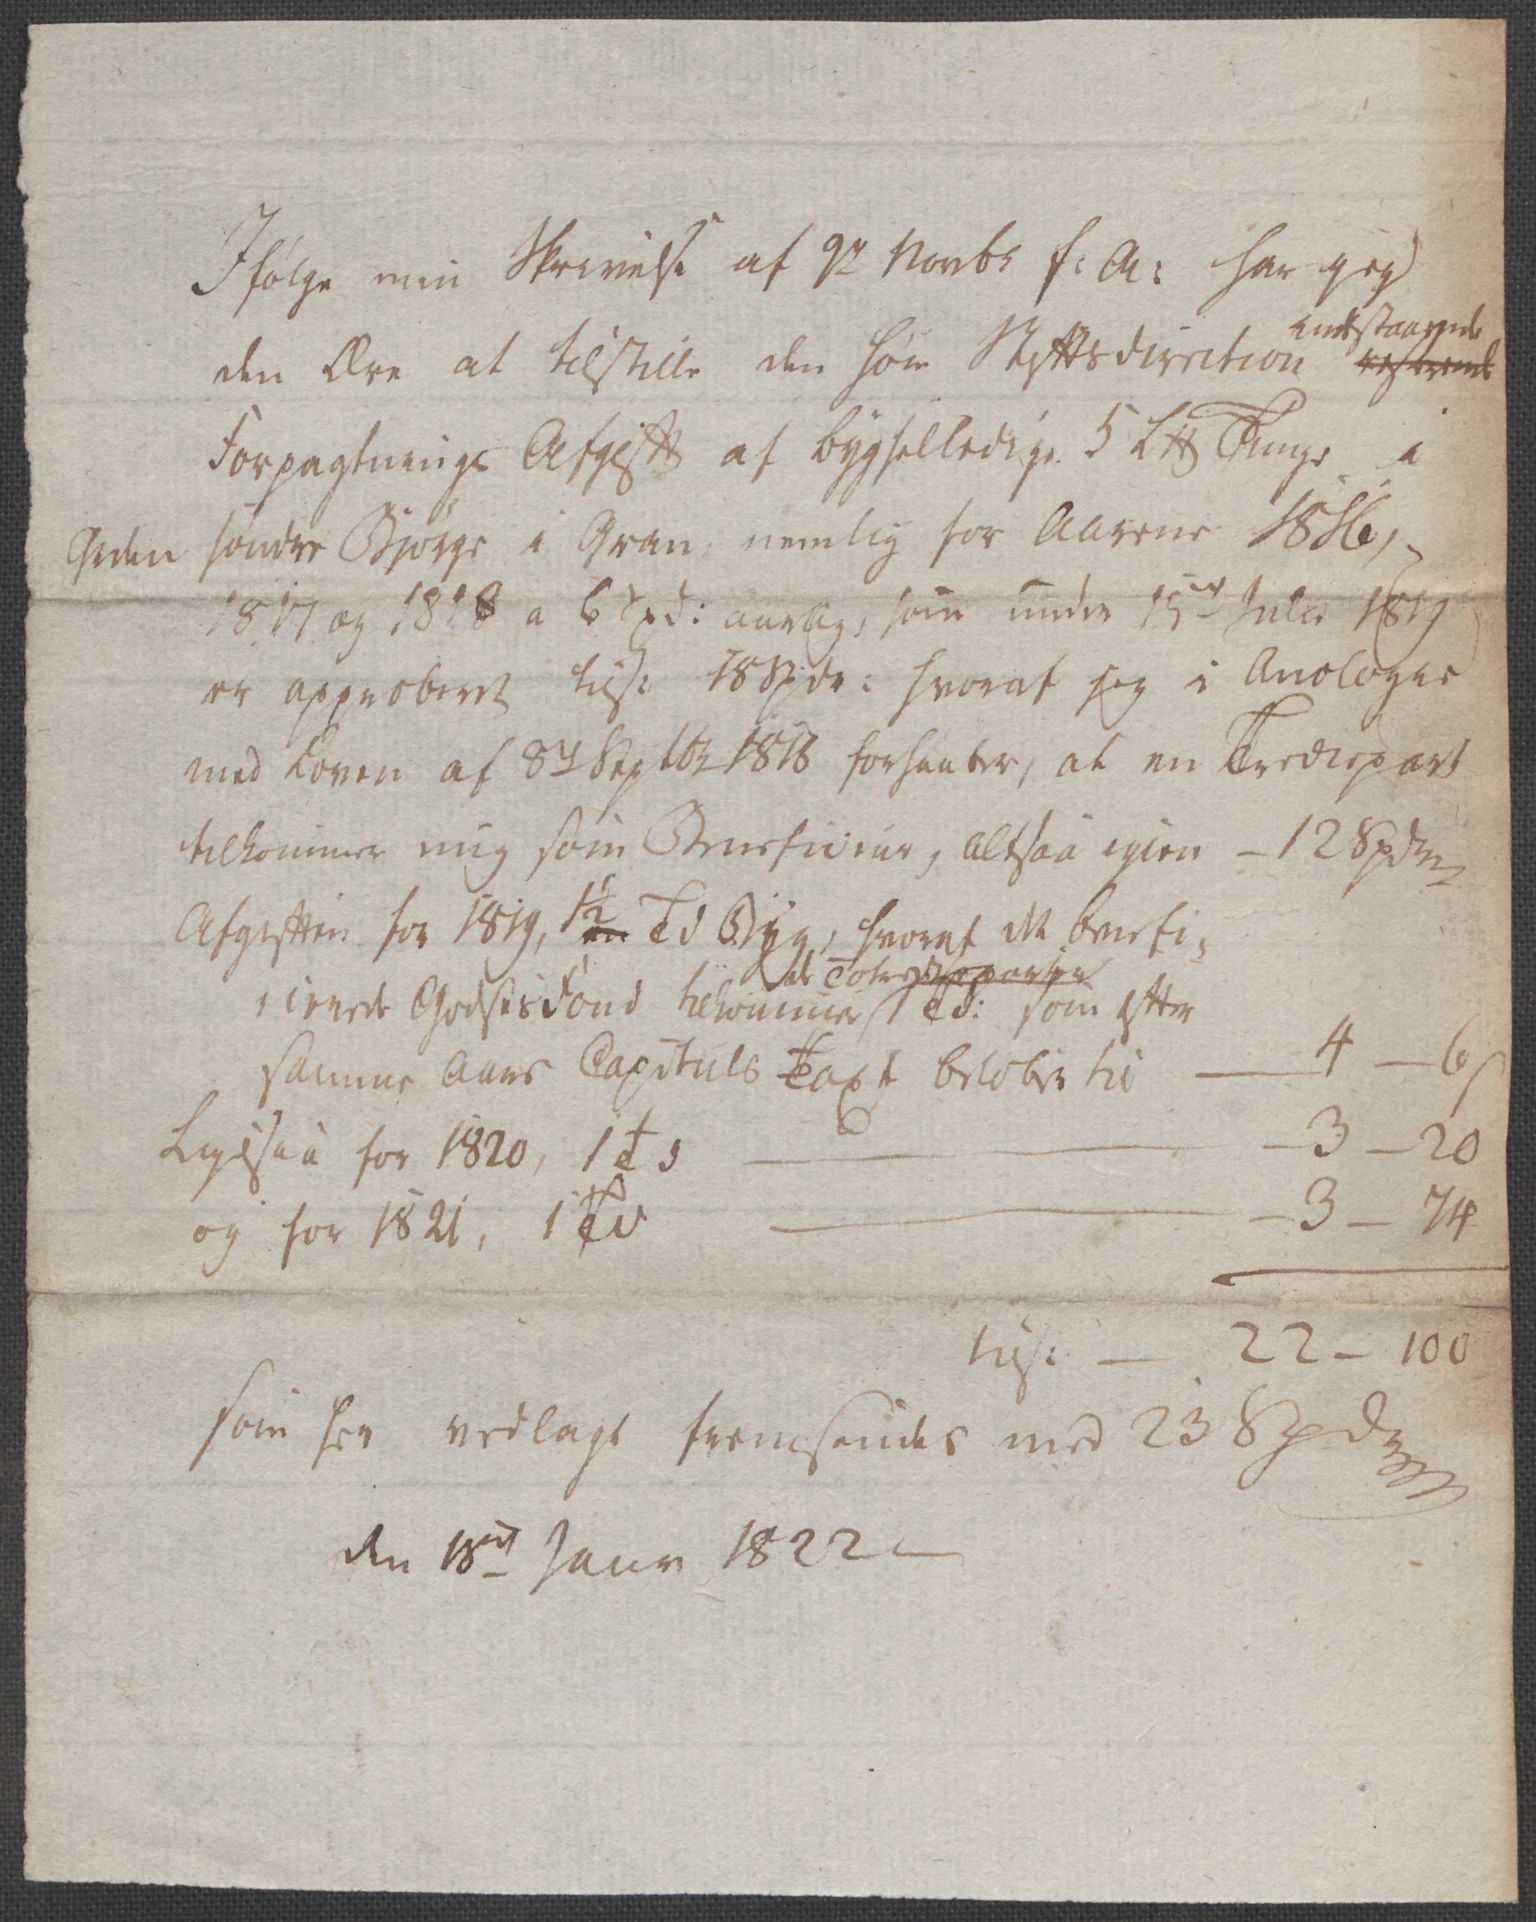 Ifølge min Skrivelse af 9de Novbr f: A: har jeg
den Ære at tilstille den høie Stiftsdirection indestaaende
Forpagtnings Afgift af bygselledige 5 L℔ Tunge i
Grden søndre Bjørge i Gran, nemlig for Aarene 1816,
1817 og 1818 a 6 Spd: aarlig, som under 15de Julii 1819
er approberet tils: 18 Spdr: hvoraf jeg i Anologie
med Loven af 8de Septbr 1818 forhaaber, at en Trediepart
tilkommer mig som Beneficiair, altsaa igien – 12 Spdr
Afgiften for 1819, 1½ Td Byg, hvoraf det benefi-
de To Tredieparter
cerede Godses Fond tilkommer 1 Td: som efter
samme Aars Capituls Taxt beløber til — 4 — 6 s
Ligesaa for 1820, 1 Td — 3 — 20
og for 1821, 1 Td — 3 — 74
tils: — 22 — 100
som her vedlagt fremsendes med 23 Spdr
den 18de Janr 1822